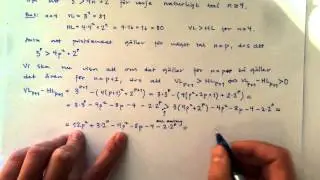 3ⁿ > 4n² + 2ⁿ för varje naturligt tal n ≥ 4.
Bas: n=4 VL = 3⁴ = 81
HL = 4·4² + 2⁴ = 4·16 + 16 = 80 VL > HL för n=4
Antag att påståendet gäller för något tal n=p, dvs att
3ᵖ > 4p² + 2ᵖ
Vi ska nu visa att om det gäller för n=p gäller det
även för n=p+1, dvs VLₚ₊₁ > HLₚ₊₁ ⇔ VLₚ₊₁ - HLₚ₊₁ > 0
VLₚ₊₁ - HLₚ₊₁ = 3ᵖ⁺¹ - (4(p+1)² + 2ᵖ⁺¹) = 3·3ᵖ - (4(p²+2p+1) + 2·2ᵖ) =
= 3·3ᵖ - 4p² - 8p - 4 - 2·2ᵖ > 3(4p²+2ᵖ) - 4p² - 8p - 4 - 2·2ᵖ =
= 12p² + 3·2ᵖ - 4p² - 8p - 4 - 2·2ᵖ =